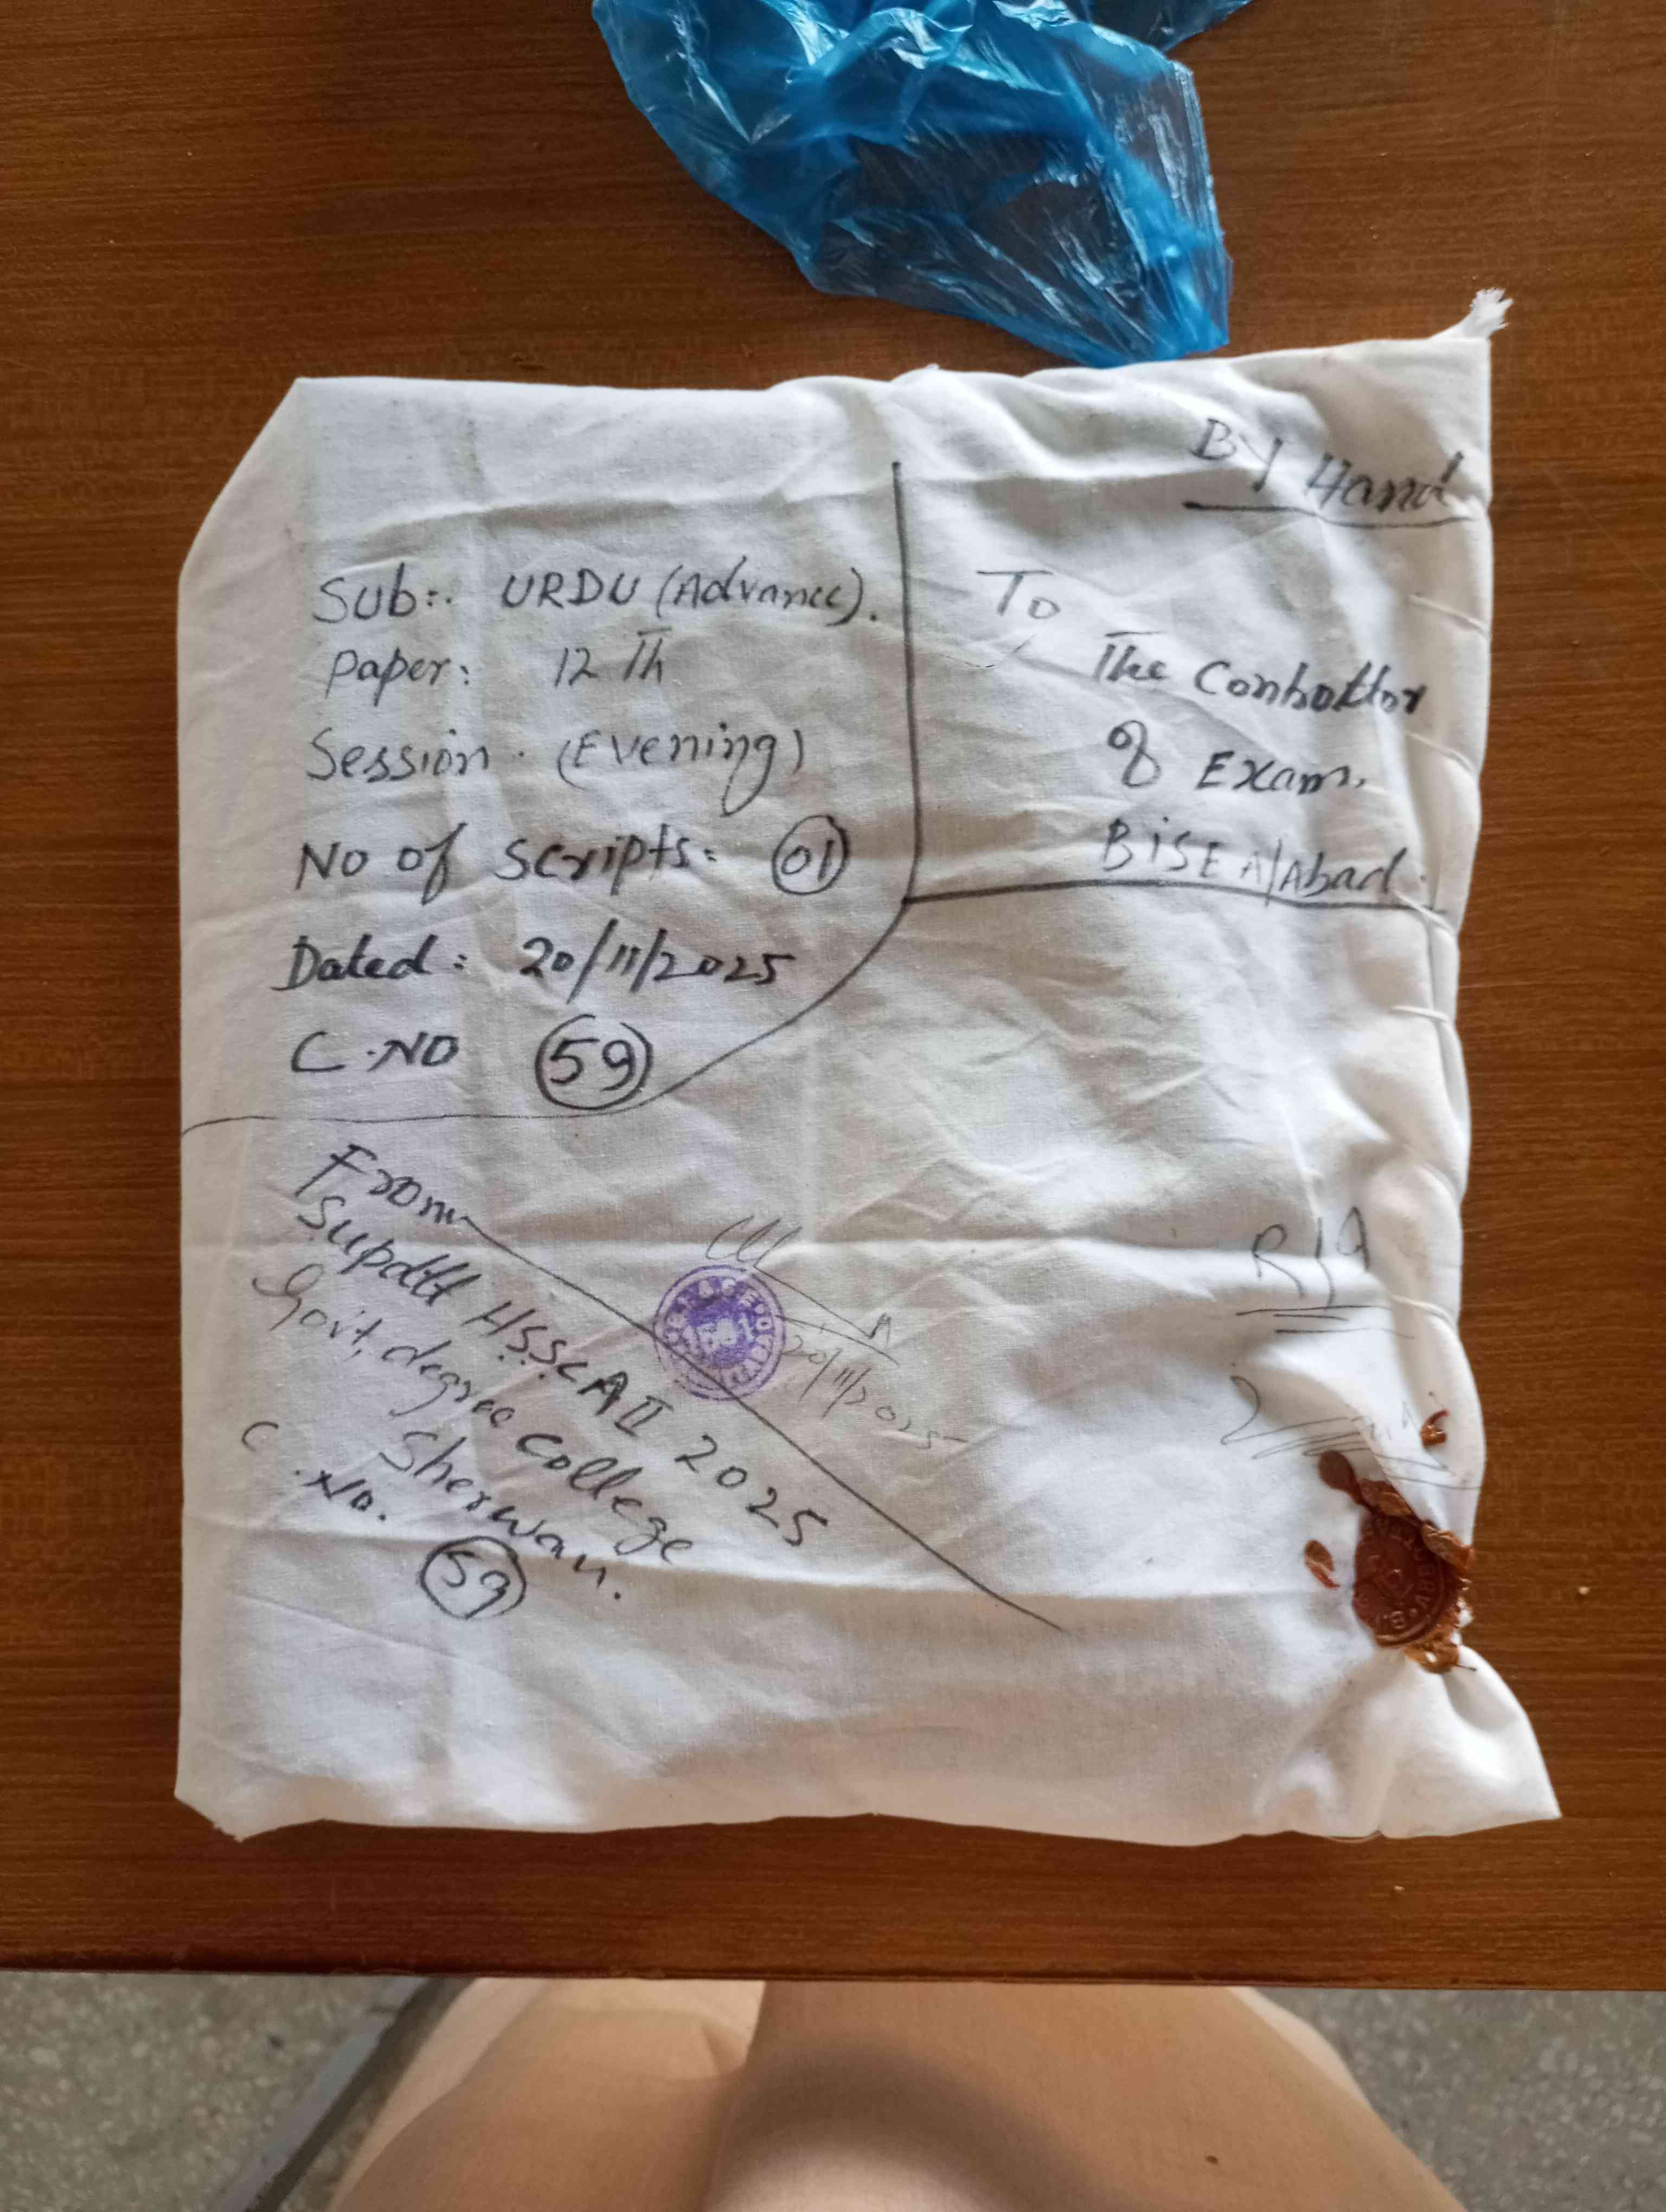 By Hand
Sub:. URDU (Advance).
Paper: 12 Th
Session. (Evening)
No of scripts: 01
Dated: 20/11/2025
C.NO 59
To
The Controller
of Exam.
BiSE A/Abad.
From
Supdtt HSSC A II 2025
Govt. degree College
Sherwan.
C.No.
59
20/11/2025